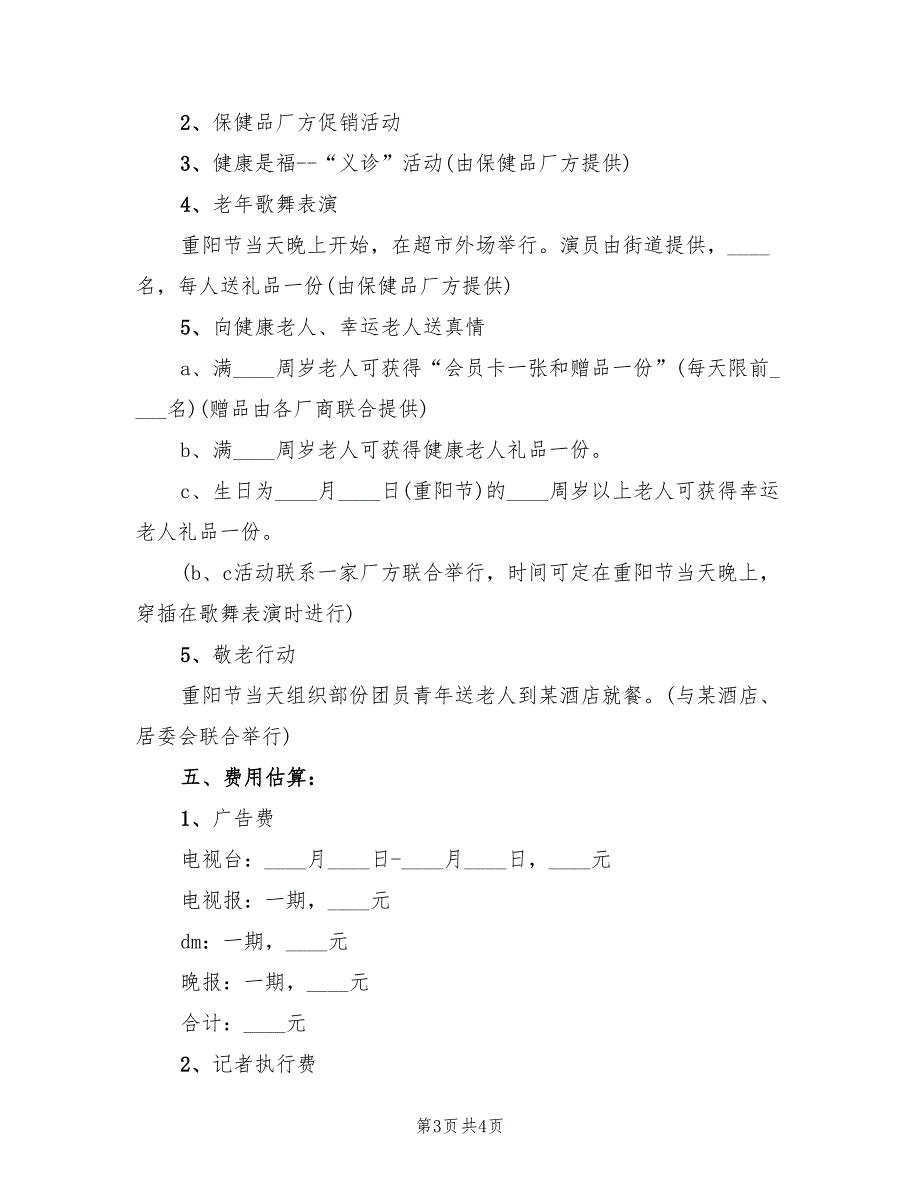 2、保健品厂方促销活动
3、健康是福--“义诊”活动(由保健品厂方提供)
4、老年歌舞表演
重阳节当天晚上开始，在超市外场举行。演员由街道提供，____
名，每人送礼品一份(由保健品厂方提供)
5、向健康老人、幸运老人送真情
a、满____周岁老人可获得“会员卡一张和赠品一份”(每天限前_
___名)(赠品由各厂商联合提供)
b、满____周岁老人可获得健康老人礼品一份。
c、生日为____月____日(重阳节)的____周岁以上老人可获得幸运
老人礼品一份。
(b、c活动联系一家厂方联合举行，时间可定在重阳节当天晚上，
穿插在歌舞表演时进行)
5、敬老行动
重阳节当天组织部份团员青年送老人到某酒店就餐。(与某酒店、
居委会联合举行)
五、费用估算：
1、广告费
电视台：____月____日-____月____日，____元
电视报：一期，____元
dm：一期，____元
晚报：一期，____元
合计：____元
2、记者执行费
第3页共4页